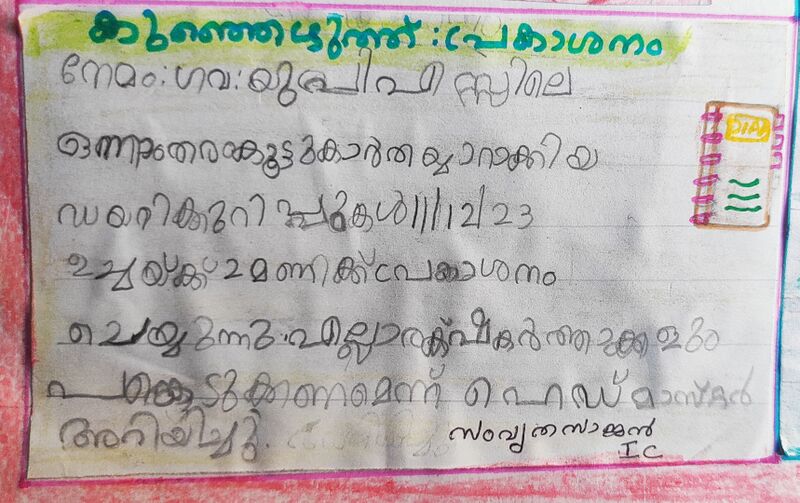 കുഞ്ഞെഴുത്ത് : പ്രകാശനം
നേമം : ഗവ : യു പി എസ്സിലെ
ഒന്നാംതരക്കൂട്ടുകാർ തയ്യാറാക്കിയ
ഡയറിക്കുറിപ്പുകൾ 11/12/23
ഉച്ചയ്ക്ക് 2 മണിക്ക് പ്രകാശനം
ചെയ്യുന്നു. എല്ലാ രക്ഷകർത്താക്കളും
പങ്കെടുക്കണമെന്ന് ഹെഡ്മാസ്റ്റർ
അറിയിച്ചു.
സംവൃത സാജൻ
I C